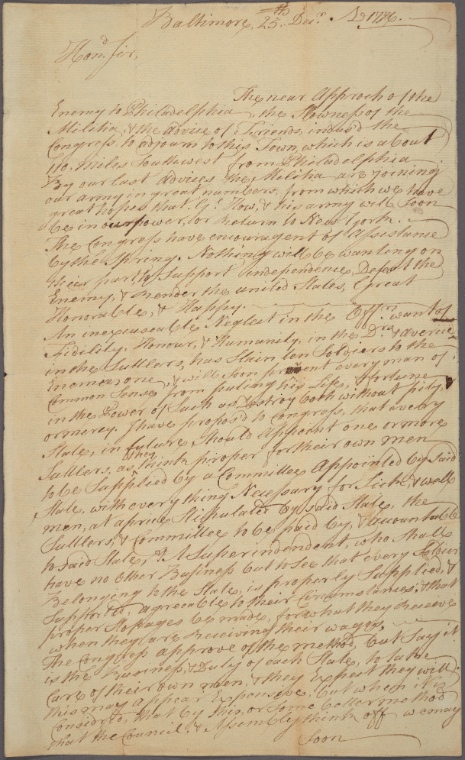 Baltimore 25th Decr. AD 1776.
Hond. Sir,
The near Approch of the
Enemy to Philadelphia, the Slowness of the
Militia, & the advice of Friends, induced the
Congress to adjourn to this Town, which is about
110 Miles Southwest from Philadelphia.
By our last advices the Militia are joining
our army in great numbers, from which we have
great hopes that Gl. How, & his army will soon
be in our power, or return to New York.
The Congress have encouragment of Assistance
by the Spring. Nothing will be wanting on
their part, to Support independence, Defeat the
Enemy, & render the united States, great
Honorable, & Happy.
An inexcuseable Neglect in the Offrs. want of
Fidelity, Honour, & Humanity, in the Drs. & averice
in the Suttlers, has Slain ten Soldiers to the
Enemies one, & will soon prevent every man of
Common Sense from puting his Life, & Fortune
in the Power of Such as Destroy both without pity
or mercy. I have propos'd to Congress, that every
State, in future Should Appoint one or more
Suttlers, as they think proper for their own men
to be Supplied by a Committee Appointed by Said
State, with everything Necessary for Sick & well
men, at a price Stipulated by Said State, the
Suttlers, & Committee to be paid by, & accountable
to Said State, & A Superintendent, who Shall
have no other Business but to See that every Soldier
Belonging to the State, is properly Supplied, &
Supported agreeable to their Circumstances; & that
proper Stopages be made, for what they Receive
when they are Receiving their wages.
The Congress approve of the method, but Say it
is the Business, & Duty of each State, to take
Care of their own men, & they Expect they will;
this may appear Expensive, but when it is
Considerd, that by this, or some better method
that the Council, & Assembly think off we may
Soon